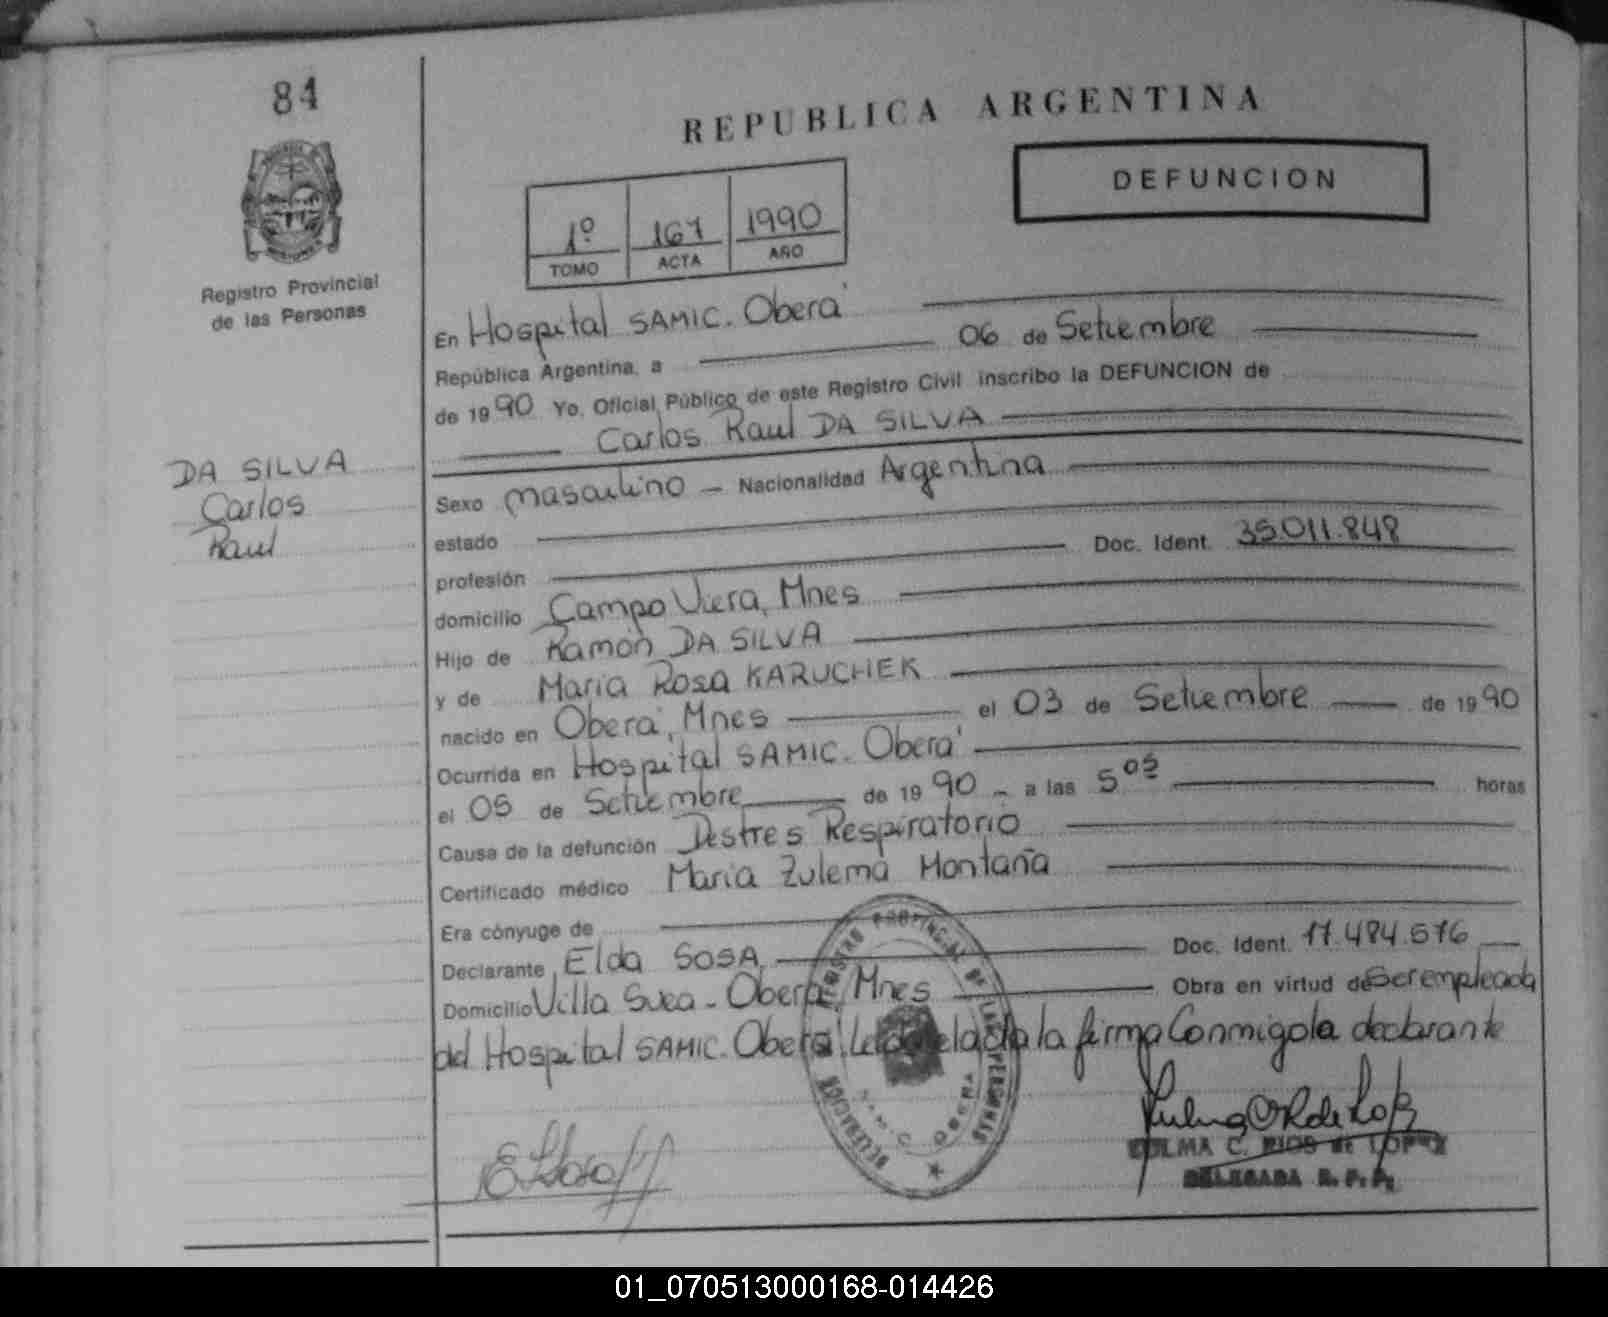 84
REPUBLICA ARGENTINA
DEFUNCION
1º 167 1990
TOMO ACTA AÑO
Registro Provincial
de las Personas
En Hospital SAMIC. Oberá
República Argentina, a 06 de Setiembre
de 1990 Yo, Oficial Público de este Registro Civil inscribo la DEFUNCION de
Carlos Raul DA SILVA
DA SILVA
Carlos
Raul
Sexo masculino - Nacionalidad Argentina
estado
profesión Doc. Ident. 35.011.848
domicilio Campo Viera, Mnes
Hijo de Ramón DA SILVA
y de Maria Rosa KARUCHEK
nacido en Oberá, Mnes el 03 de Setiembre de 1990
Ocurrida en Hospital SAMIC. Oberá
el 05 de Setiembre de 1990 - a las 5 05 horas
Causa de la defunción Destres Respiratorio
Certificado médico Maria Zulema Montaña
Era cónyuge de
Declarante Elda SOSA Doc. Ident. 17.484.576
Domicilio Villa Svea - Oberá, Mnes Obra en virtud de Ser empleada
del Hospital SAMIC. Oberá. Leida el acta la firma Conmigo la declarante
REGISTRO PROVINCIAL DE LAS PERSONAS
DELEGACION
SAMIC OBERA
ZULMA C. RIOS de LOPEZ
DELEGADA R. P. P.
01_070513000168-014426